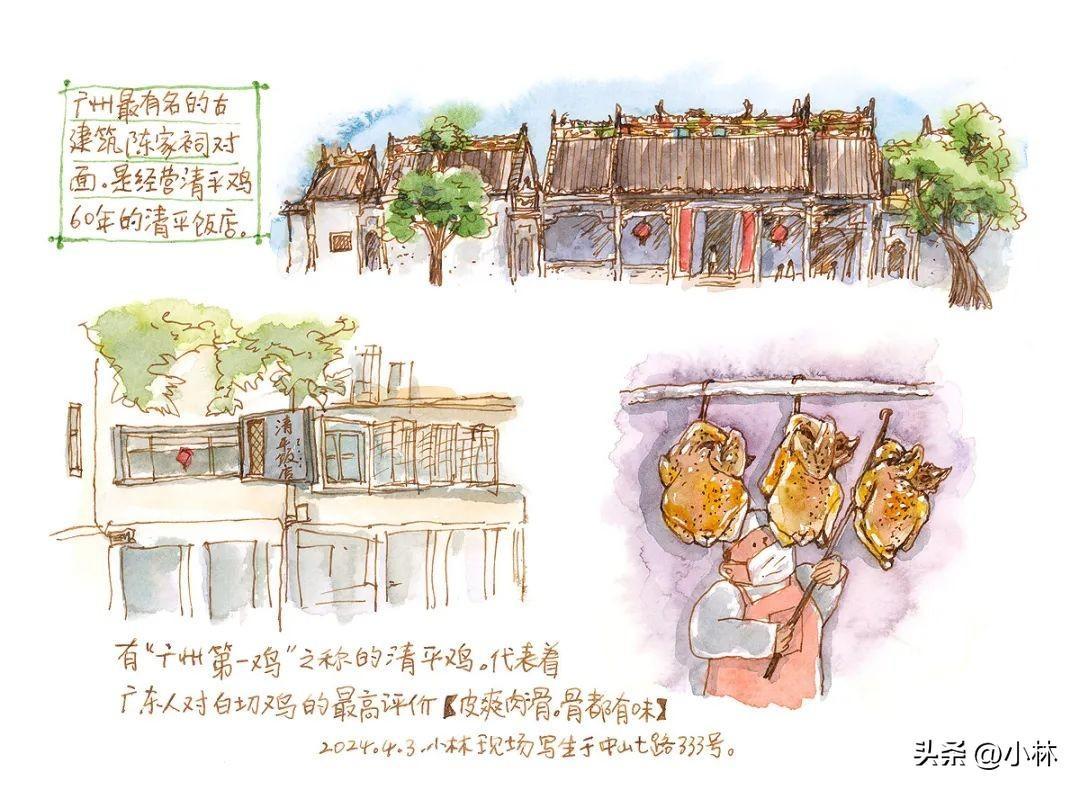 广州最有名的古
建筑陈家祠对
面。是经营清平鸡
60年的清平饭店。
清平饭店
有“广州第一鸡”之称的清平鸡。代表着
广东人对白切鸡的最高评价【皮爽肉滑。骨都有味】
2024.4.3.小林现场写生于中山七路333号。
头条 @小林